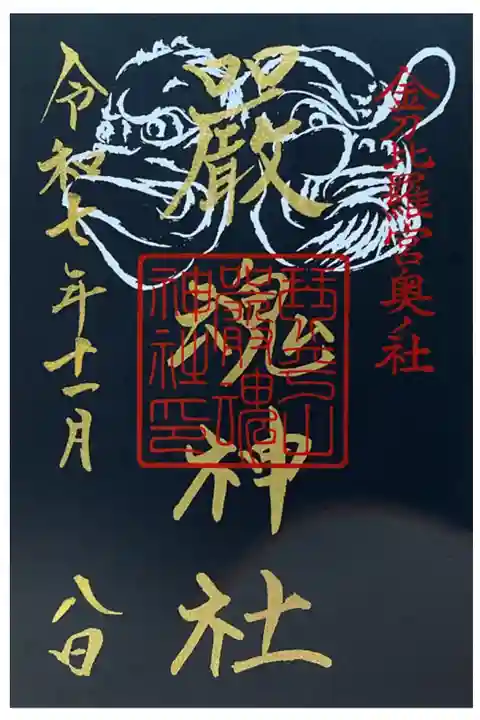 金刀比羅宮奥ノ社
嚴魂神社
琴平山
嚴魂
神社印
令和七年十一月
八日